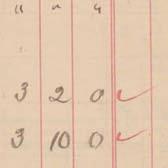 " " "
3 2 0 ✓
3 10 0 ✓